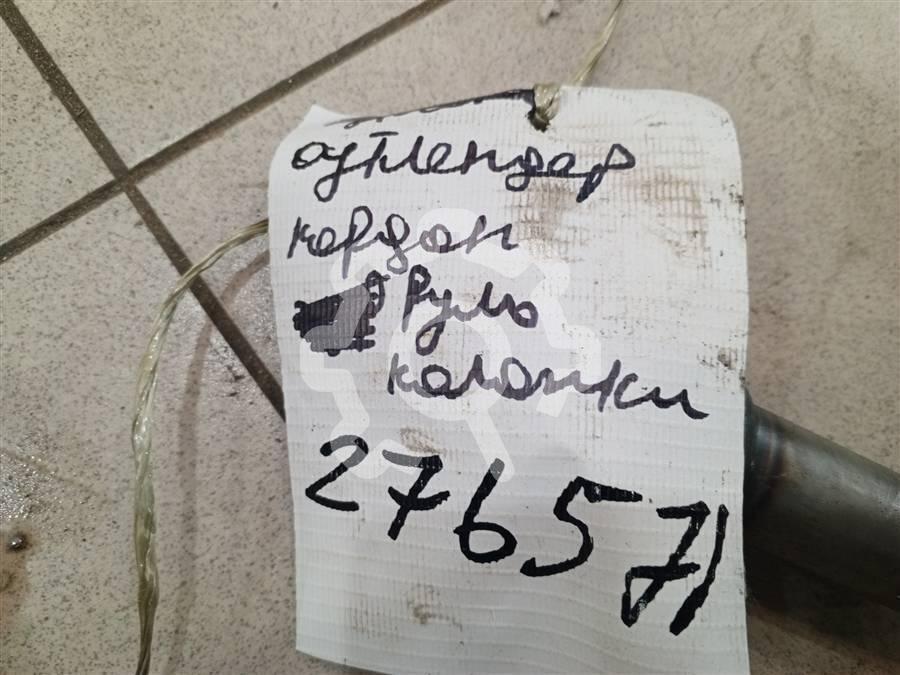 аутлендар
кардан
Рулю
калонки
276571